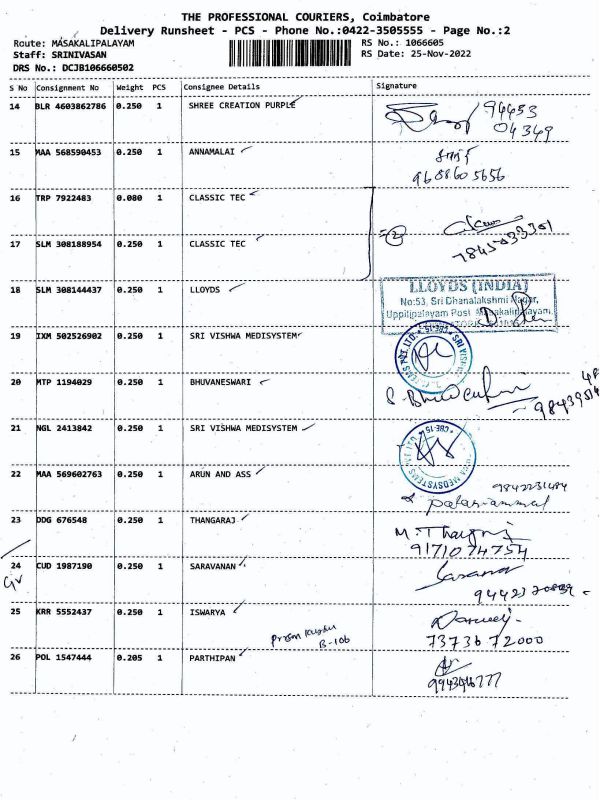 THE PROFESSIONAL COURIERS, Coimbatore
Delivery Runsheet - PCS - Phone No.:0422-3505555 - Page No.:2
Route: MASAKALIPALAYAM RS No.: 1066605
Staff: SRINIVASAN RS Date: 25-Nov-2022
DRS No.: DCJB106660502
S No Consignment No Weight PCS Consignee Details Signature
14 BLR 4603862786 0.250 1 SHREE CREATION PURPLE 94453
04349
15 MAA 568590453 0.250 1 ANNAMALAI
9688605656
16 TRP 7922483 0.080 1 CLASSIC TEC
17 SLM 308188954 0.250 1 CLASSIC TEC
18 SLM 308144437 0.250 1 LLOYDS LLOYDS (INDIA)
No:53, Sri Dhanalakshmi Nagar,
Uppilipalayam Post Masakalipalayam,
19 IXM 502526902 0.250 1 SRI VISHWA MEDISYSTEM
20 MTP 1194029 0.250 1 BHUVANESWARI
21 NGL 2413842 0.250 1 SRI VISHWA MEDISYSTEM
CBE-15
22 MAA 569602763 0.250 1 ARUN AND ASS 9842231484
23 DDG 676548 0.250 1 THANGARAJ M.
9171074754
24 CUD 1987190 0.250 1 SARAVANAN
25 KRR 5552437 0.250 1 ISWARYA
B-106 7373672000
26 POL 1547444 0.205 1 PARTHIPAN